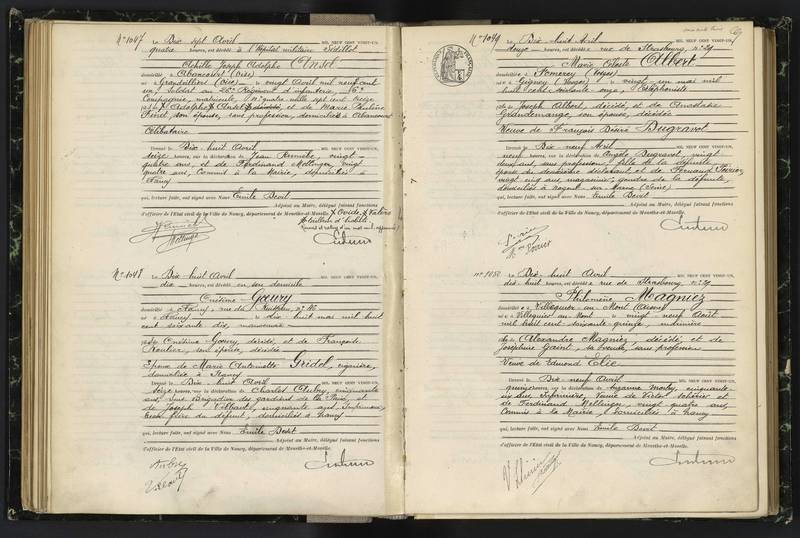 N° 1047 Le Dix sept Avril MIL NEUF CENT VINGT-UN,
quatre heures, est décédé à l'Hôpital militaire Sédillot
Achille Joseph Adolphe Ansel
domicilié à Abancourt (Oise)
né à Grandvilliers (Oise) le vingt Avril mil neuf cent
un, Soldat au 26me Régiment d'infanterie, 6e
Compagnie, matricule quatre mille sept cent seize
fils de Adolphe Ansel et de Marie
son épouse, sans profession, domiciliés à Abancourt
Célibataire
Dressé le Dix huit Avril MIL NEUF CENT VINGT-UN,
seize heures, sur la déclaration de Jean vingt-
quatre ans, et de Ferdinand Mellinger, vingt
quatre ans, Commis à la Mairie, domiciliés à
Nancy
qui, lecture faite, ont signé avec Nous Emile Bevit
Adjoint au Maire, délégué faisant fonctions
d'officier de l'Etat civil de la Ville de Nancy, département de Meurthe-et-Moselle. X Ovide, Valère
Mellinger
N° 1048 Le Dix huit Avril MIL NEUF CENT VINGT-UN,
dix heures, est décédé en son domicile
Cristine Goeury
domicilié à Nancy, rue
né à Nancy le dix huit mai mil huit
cent soixante dix, manoeuvre
fils de Cristine Goeury, décédé, et de Françoise
son épouse, décédée
Epoux de Marie Antoinette Gridel, cigarière,
domiciliée à Nancy
Dressé le Dix huit Avril MIL NEUF CENT VINGT-UN,
seize heures, sur la déclaration de Charles Aubry, cinquante
ans, Sous Brigadier des gardiens de la Paix, et
de Joseph cinquante ans,
Beau frère du défunt, domiciliés à Nancy
qui, lecture faite, ont signé avec Nous Emile Bevit
Adjoint au Maire, délégué faisant fonctions
d'officier de l'Etat civil de la Ville de Nancy, département de Meurthe-et-Moselle.
Aubry
N° 1049 Le Dix huit Avril MIL NEUF CENT VINGT-UN,
douze heures, est décédée rue de Strasbourg, n° 29
Marie Céleste Albert
domiciliée à Pomerey (Vosges)
née à Gigney (Vosges) le vingt-un mai mil
huit cent soixante onze,
fille de Joseph Albert, décédé, et de Anastasie
Grandemange, son épouse, décédée
Veuve de François Désiré Bugravot
Dressé le Dix neuf Avril MIL NEUF CENT VINGT-UN,
neuf heures, sur la déclaration de Angèle Bugravot, vingt
neuf ans, sans profession, fille de la défunte,
épouse du deuxième déclarant et de Fernand
vingt cinq ans, magasinier, gendre de la défunte,
domiciliés à Nogent sur Marne (Seine)
qui, lecture faite, ont signé avec Nous Emile Bevit
Adjoint au Maire, délégué faisant fonctions
d'officier de l'Etat civil de la Ville de Nancy, département de Meurthe-et-Moselle.
N° 1050 Le Dix huit Avril MIL NEUF CENT VINGT-UN,
dix huit heures, est décédée rue de Strasbourg, n° 29
Philomène Magniez
domiciliée à Villequier au Mont (Aisne)
née à Villequier au Mont le vingt neuf Août
mil huit cent soixante quinze,
fille de Alexandre Magniez, décédé, et de
Joséphine sa veuve, sans profession
Veuve de Edmond Elie
Dressé le Dix neuf Avril MIL NEUF CENT VINGT-UN,
quinze heures, sur la déclaration de cinquante
six ans, Infirmière, Veuve de Victor et
de Ferdinand Mellinger, vingt quatre ans,
Commis à la Mairie, domiciliés à Nancy
qui, lecture faite, ont signé avec Nous Emile Bevit
Adjoint au Maire, délégué faisant fonctions
d'officier de l'Etat civil de la Ville de Nancy, département de Meurthe-et-Moselle.